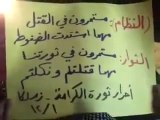 (النظام): مستمرون في القتل
مهما اشتدت الضغوط
الثوار: مستمرون في ثورتنا
مهما قتلتم ونكلتم
أحرار ثورة الكرامة - زملكا
١٢/١